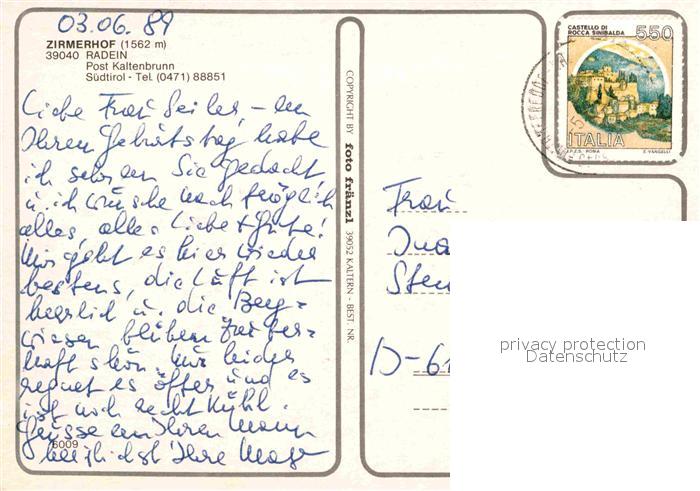 03.06.89
ZIRMERHOF (1562 m)
39040 RADEIN
Post Kaltenbrunn
Südtirol - Tel. (0471) 88851
Liebe Frau Seiler, – an
Ihren Geburtstag habe
ich schon Sie gedacht
u. ich wünsche nachträglich
alles, alles Liebe + Gute!
Mir geht es hier wieder
bestens, die Luft ist
herrlich u. die Berg-
wiesen blühen zauber-
haft schön. Nur leider
regnet es öfter und es
ist noch recht kühl.
Grüsse an Ihren Mann
herzlichst Ihre
6009
COPYRIGHT BY foto fränzl 39052 KALTERN - BEST. NR.
CASTELLO DI
ROCCA SINIBALDA
550
ITALIA
I.P.Z.S. ROMA
E. VANGELLI
Frau
D-61
privacy protection
Datenschutz